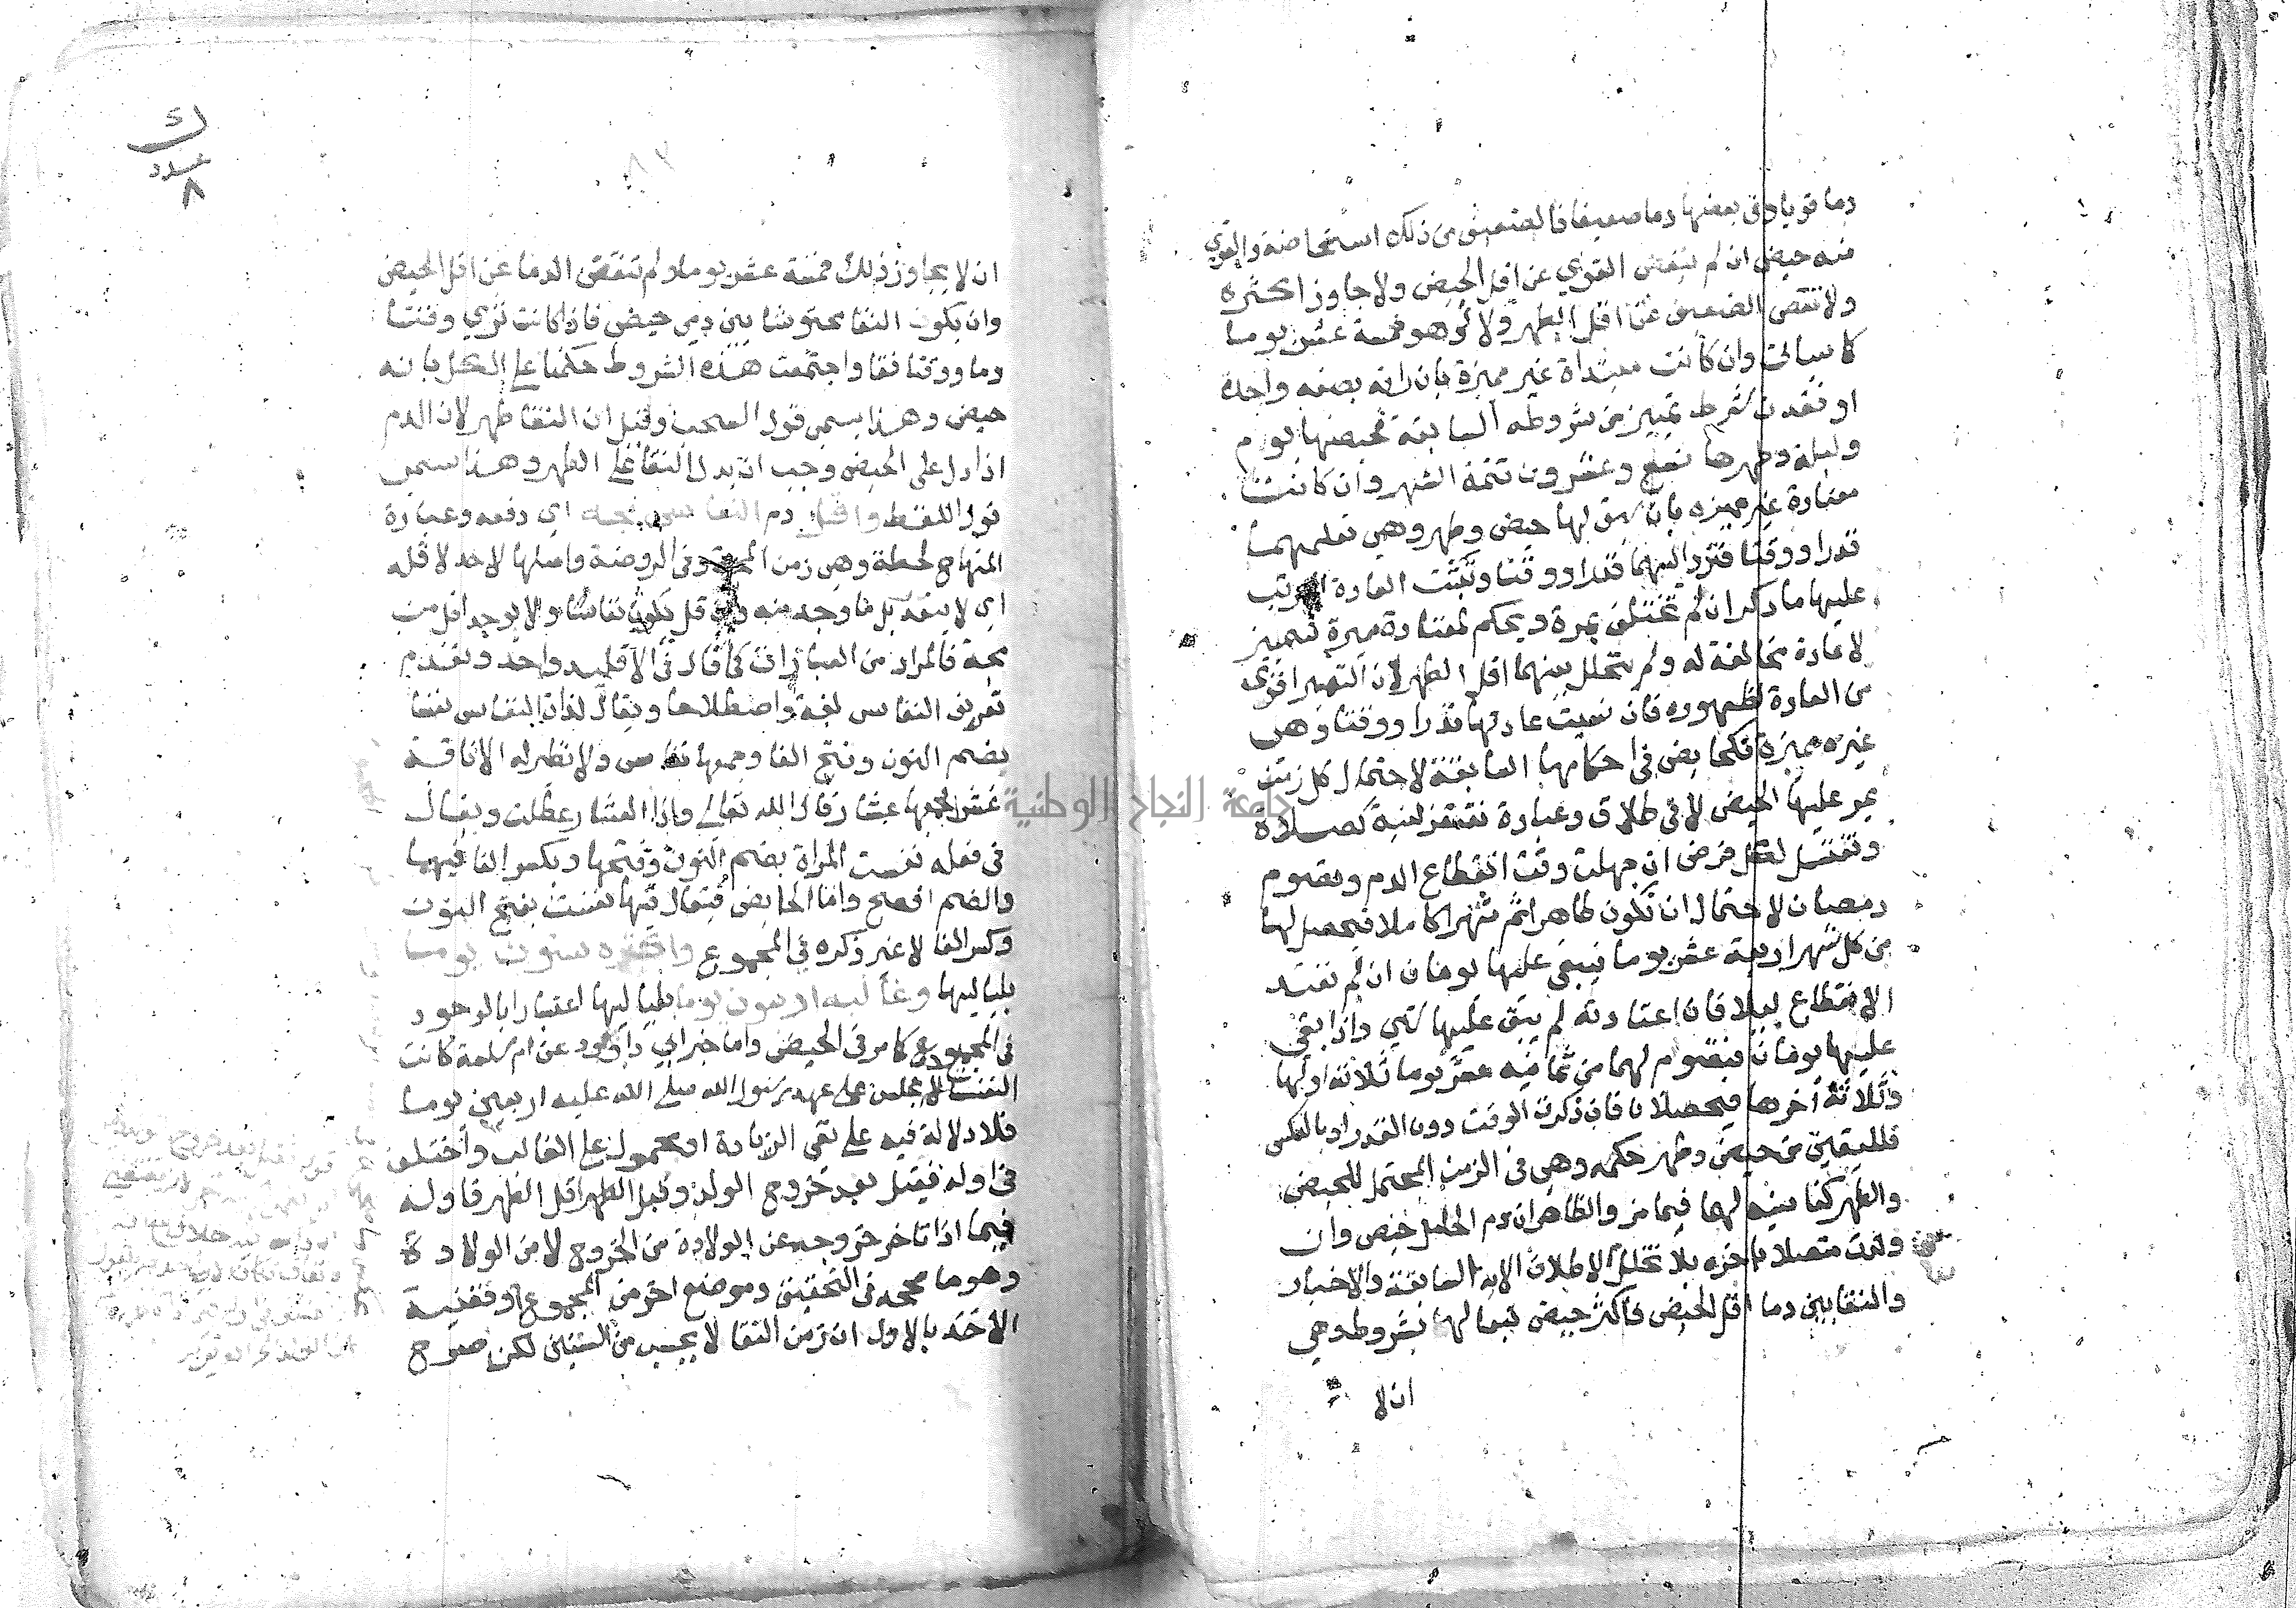 دما قويا وفى بعضها دما ضعيفا فالضعيف من ذلك استحاضة والقوي
منه حيض ان لم ينقص القوي عن اقل الحيض ولا جاوز اكثره
ولا نقص الضعيف عن اقل الطهر ولاء وهو خمسة عشر يوما
كما سياتى وان كانت مبتداة غير مميزة بان راته بصفه واحدة
او فقدت شرط تمييز من شروطه السابقة فحيضها يوم
وليلة وطهرها تسع وعشرون تتمة الشهر وان كانت
معتادة غير مميزه بان سبق لها حيض وطهر وهى تعلمهما
قدرا ووقتا فترد اليهما قدرا ووقتا وتثبت العادة المرتب
عليها ما ذكر ان لم تختلف بمرة ويحكم لمعتادة مميزة بتمييز
لا عادة مخالفة له ولم يتخلل بينهما اقل الطهر لان التمييز اقوى
من العادة لظهوره فان نسيت عادتها قدرا ووقتا وهى
غير مميزة فكحايض فى احكامها السابقة لاحتمال كل زمن
يمر عليها الحيض لا فى طلاق وعبادة تفتقر لنية كصلاة
وتغتسل لكل فرض ان جهلت وقت انقطاع الدم وتصوم
رمضان لاحتمال ان تكون طاهرا ثم شهرا كاملا فيحصل لها
من كل شهر اربعة عشر يوما فيبقى عليها يومان ان لم تعتد
الانقطاع ليلا فان اعتادته لم يبق عليها شي واذا بقى
عليها يومان فتصوم لهما من ثمانية عشر يوما ثلاثة اولها
وثلاثة اخرها فيحصلان فان ذكرت الوقت دون القدر او بالعكس
فلليقين من حيض وطهر حكمه وهى فى الزمن المحتمل للحيض
والطهر كناسية لهما فيما مر والظاهر ان دم الحامل حيض وان
ولدت متصلا باخره بلا تخلل لاطلاق الاية السابقة والاخبار
والنقا بين دما اقل الحيض فاكثر حيض تبعا لها بشروط وهي
ان لا
ك
عدد
٨
ان لا يجاوز ذلك خمسة عشر يوما ولم تنقص الدما عن اقل الحيض
وان يكون النقا محتوشا بين دمى حيض فاذا كانت ترى وقتا
دما ووقتا نقا واجتمعت هذه الشروط حكمنا على الكل بانه
حيض وهذا يسمى قول السحب وقيل ان النقا طهر لان الدم
اذا دل على الحيض وجب ان يدل النقا على الطهر وهذا يسمى
قول اللقط واقل دم النفاس مجة اى دفعه وعبارة
المنهاج لحظة وهى زمن المجة وفى الروضة واصلها لا حد لاقله
اى لا يتقدر بل ما وجد منه وان قل يكون نفاسا ولا يوجد اقل من
مجة فالمراد من العبارات كما قال فى الاقليد واحد وتقدم
تعريف النفاس لغة واصطلاحا ويقال لذات النفاس نفسا
بضم النون وفتح الفا وجمعها نفاس ولا نظير له الا ناقة
عشر الجمعها عشار قال الله تعالى واذا العشار عطلت ويقال
فى فعله نفست المراة بضم النون وفتحها وبكسر الفا فيهما
والضم افصح واما الحايض فيقال فيها نفست بفتح النون
وكسر الفا لا غير ذكره فى المجموع واكثره ستون يوما
بلياليها وغالبه اربعون يوما بلياليها اعتبارا بالوجود
فى المجموع كما مر فى الحيض واما خبر ابى داوود عن ام سلمة كانت
النفسا تجلس على عهد رسول الله صلى الله عليه اربعين يوما
فلا دلالة فيه على نفى الزيادة او محمول على الغالب واختلف
فى اوله فقيل بعد خروج الولد وقبل الطهر اقل الطهر فاوله
فيما اذا تاخر خروجه عن الولادة من الخروج لا من الولادة
وهو ما صححه فى التحقيق وموضع اخر من المجموع وقضية
الاخذ بالاول ان زمن النقا لا يحسب من الستين لكن صرح
جامعة النجاح الوطنية